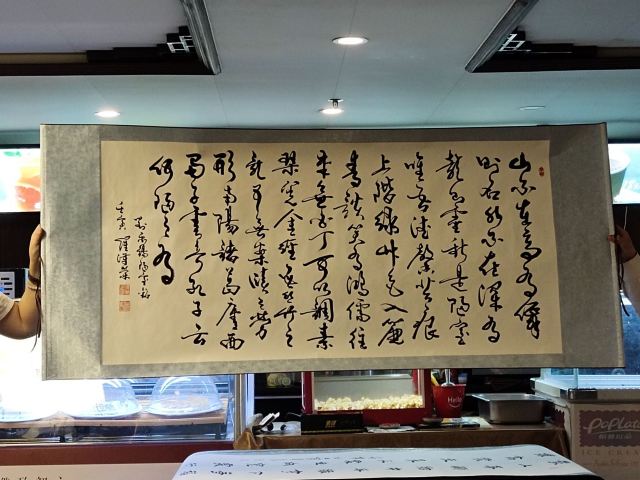 山不在高有僊
則名水不在深有
龍則靈斯是陋室
唯吾德馨苔痕
上階綠草色入簾
青談笑有鴻儒往
來無白丁可以調素
琴閱金經無絲竹之
亂耳無案牘之勞
形南陽諸葛廬西
蜀子雲亭孔子云
何陋之有
劉禹錫陋室銘
壬寅 羅
Hello
ICE CREAM